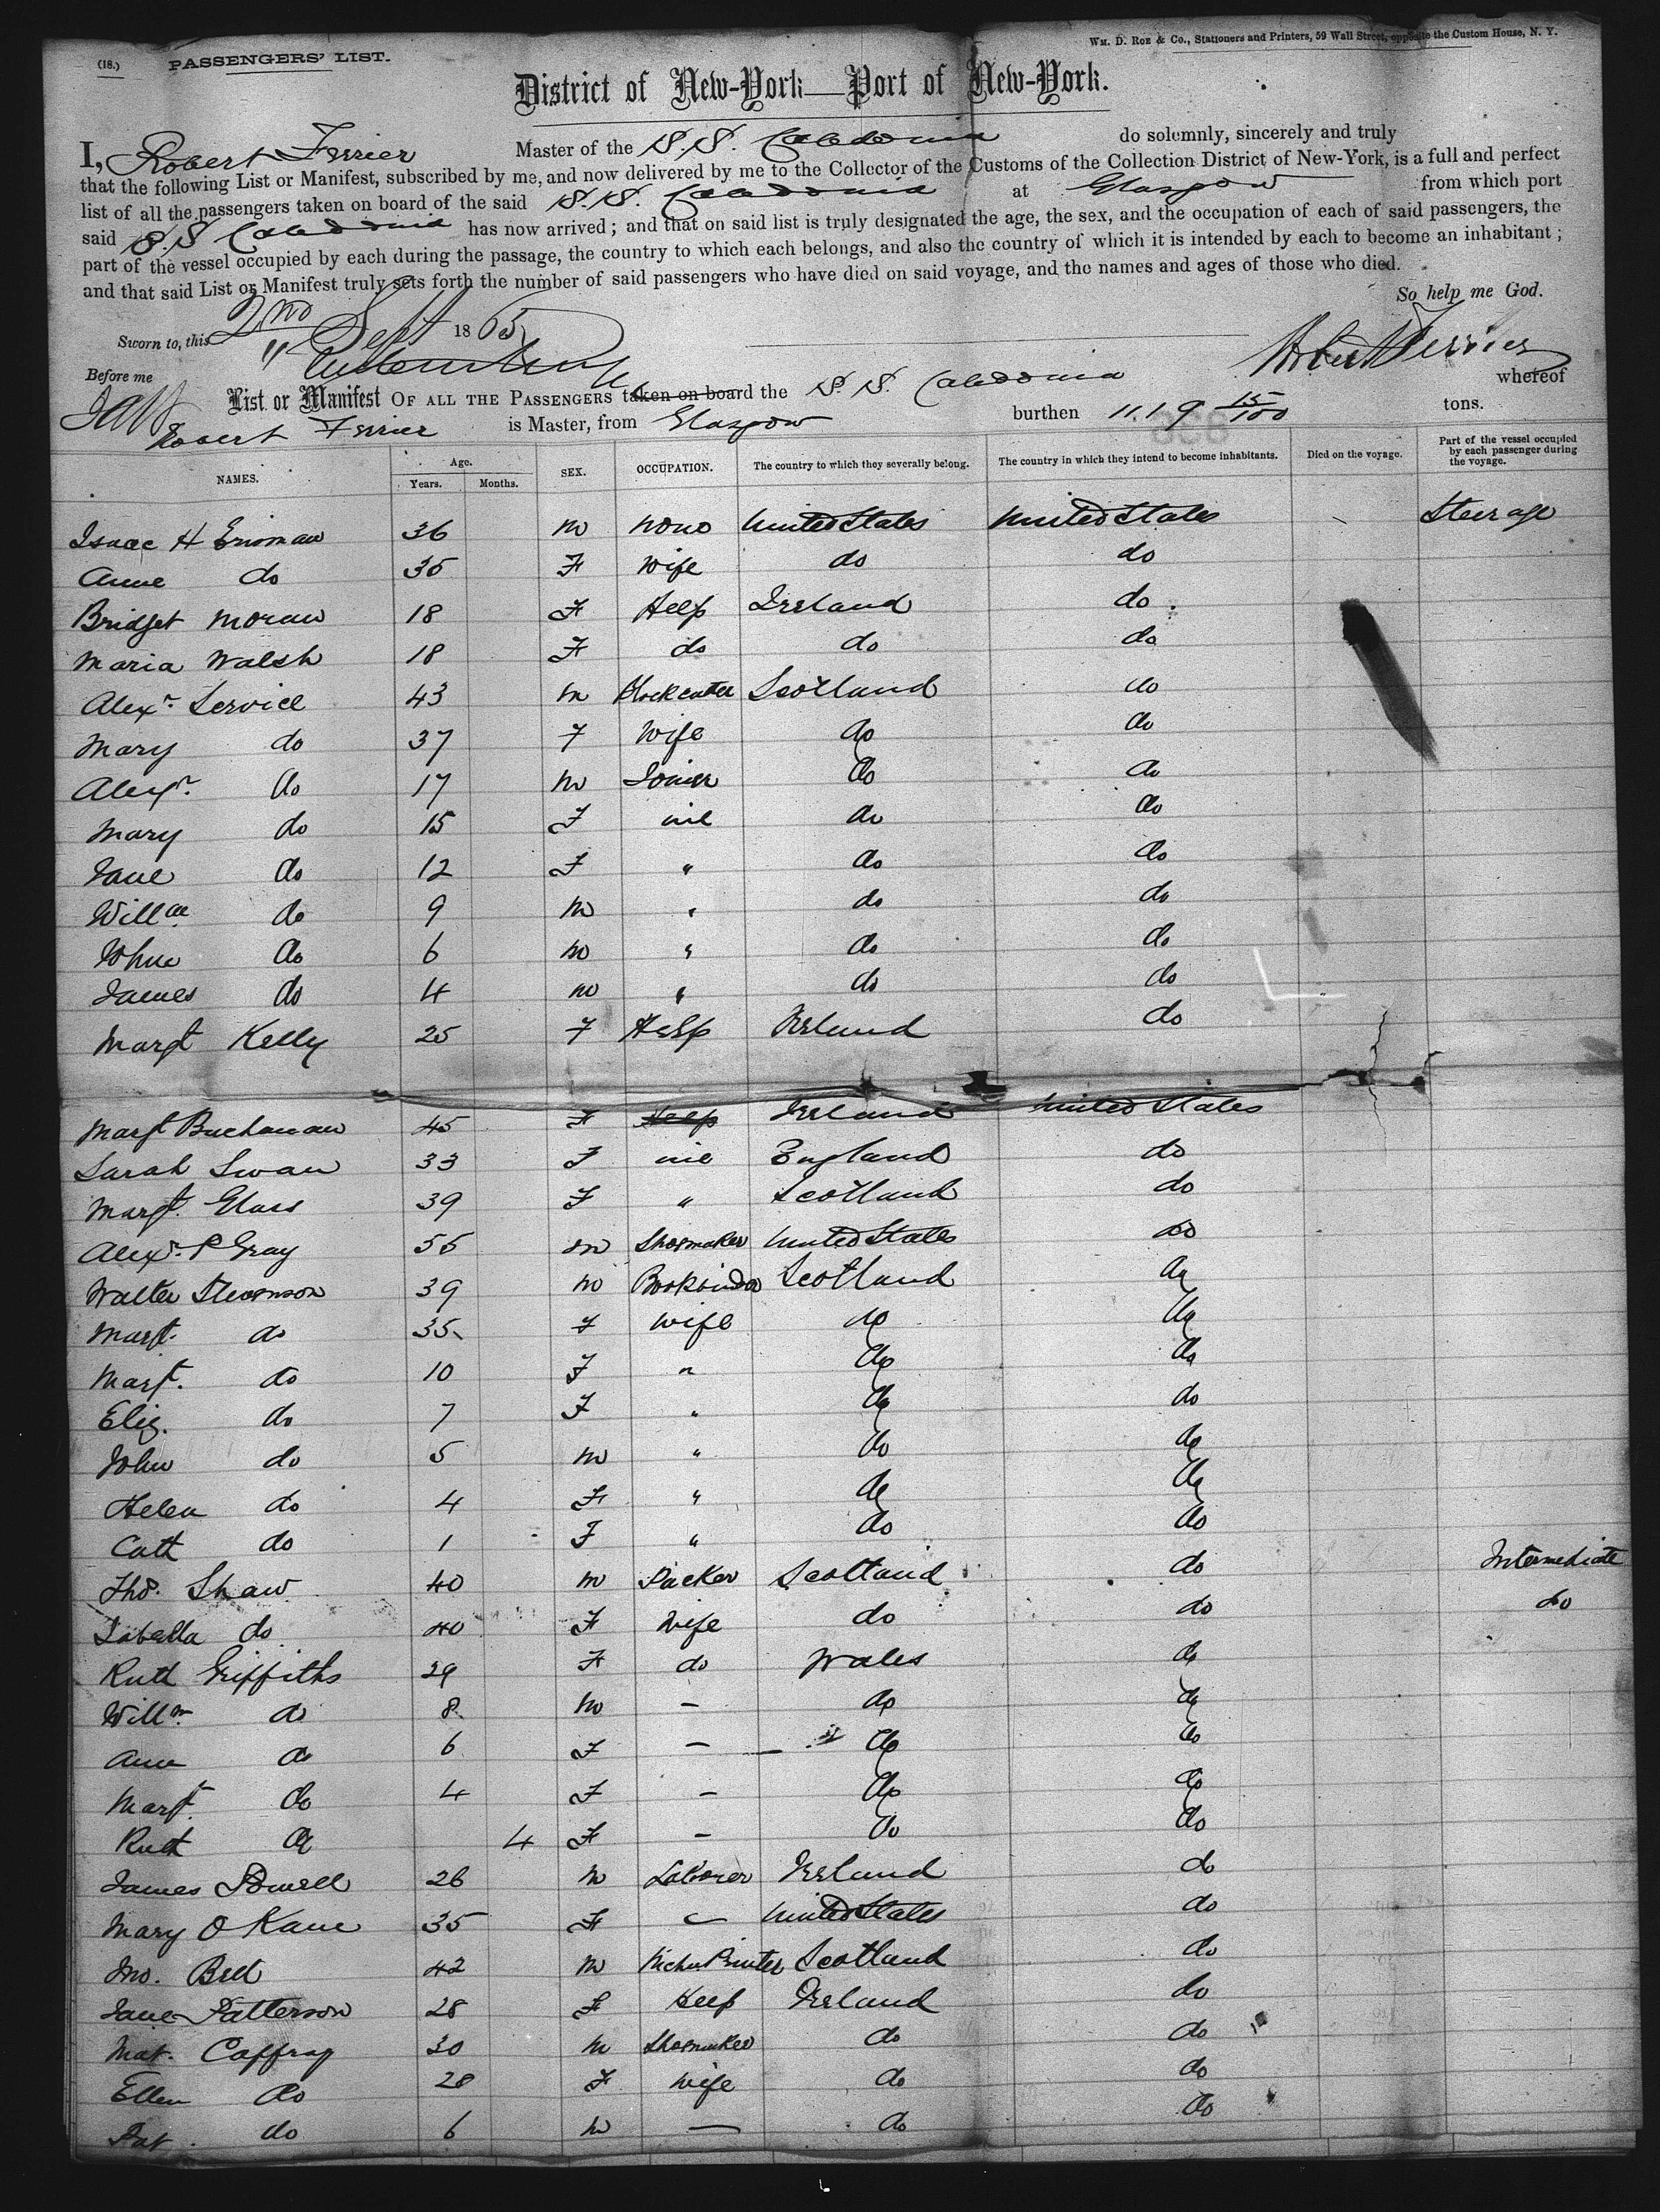 (18.) PASSENGERS' LIST.
WM. D. ROE & CO., Stationers and Printers, 59 Wall Street, opposite the Custom House, N. Y.
District of New-York—Port of New-York.
I, Robert Ferrier Master of the S.S. Caledonia do solemnly, sincerely and truly
that the following List or Manifest, subscribed by me, and now delivered by me to the Collector of the Customs of the Collection District of New-York, is a full and perfect
list of all the passengers taken on board of the said S.S. Caledonia at Glasgow from which port
said S.S Caledonia has now arrived; and that on said list is truly designated the age, the sex, and the occupation of each of said passengers, the
part of the vessel occupied by each during the passage, the country to which each belongs, and also the country of which it is intended by each to become an inhabitant;
and that said List or Manifest truly sets forth the number of said passengers who have died on said voyage, and the names and ages of those who died.
So help me God.
Sworn to, this 2nd Sept 1865
Robert Ferrier
Before me
List or Manifest OF ALL THE PASSENGERS taken on board the S. S. Caledonia whereof
Robert Ferrier is Master, from Glasgow burthen 1119 15/100 tons.
NAMES. Age. Years. Months. SEX. OCCUPATION. The country to which they severally belong. The country in which they intend to become inhabitants. Died on the voyage. Part of the vessel occupied by each passenger during the voyage.
Isaac H 36 m none United States United States Steerage
Anne do 35 F wife do do
Bridget Moran 18 F Help Ireland do
Maria Walsh 18 F do do do
Alexr. Service 43 m Blockcutter Scotland do
Mary do 37 F Wife do do
Alexr. do 17 m Joiner do do
Mary do 15 F nil do do
Jane do 12 F " do do
Willm do 9 m " do do
John do 6 m " do do
James do 4 m " do do
Margt Kelly 25 F Help Ireland do
Margt Buchanan 45 F Help Ireland United States
Sarah Swan 33 F nil England do
Margt. Glass 39 F " Scotland do
Alexr. P Gray 55 m Shoemaker United States do
Walter Stevenson 39 m Bookbinder Scotland do
Margt. do 35 F wife do do
Margt. do 10 F " do do
Eliz. do 7 F " do do
John do 5 m " do do
Helen do 4 F " do do
Cath do 1 F " do do
Thos. Shaw 40 m Packer Scotland do Intermediate
Isabella do 40 F wife do do do
Ruth Griffiths 29 F do Wales do
Willm do 8 m — do do
Ann do 6 F — do do
Margt. do 4 F — do do
Ruth do 4 F — do do
James Powell 26 m Laborer Ireland do
Mary O Kane 35 F — United States do
Jno. Bell 42 m Scotland do
Jane Patterson 28 F Help Ireland do
Mat. Caffray 30 m Shoemaker do do
Ellen do 28 F wife do do
Pat. do 6 m — do do